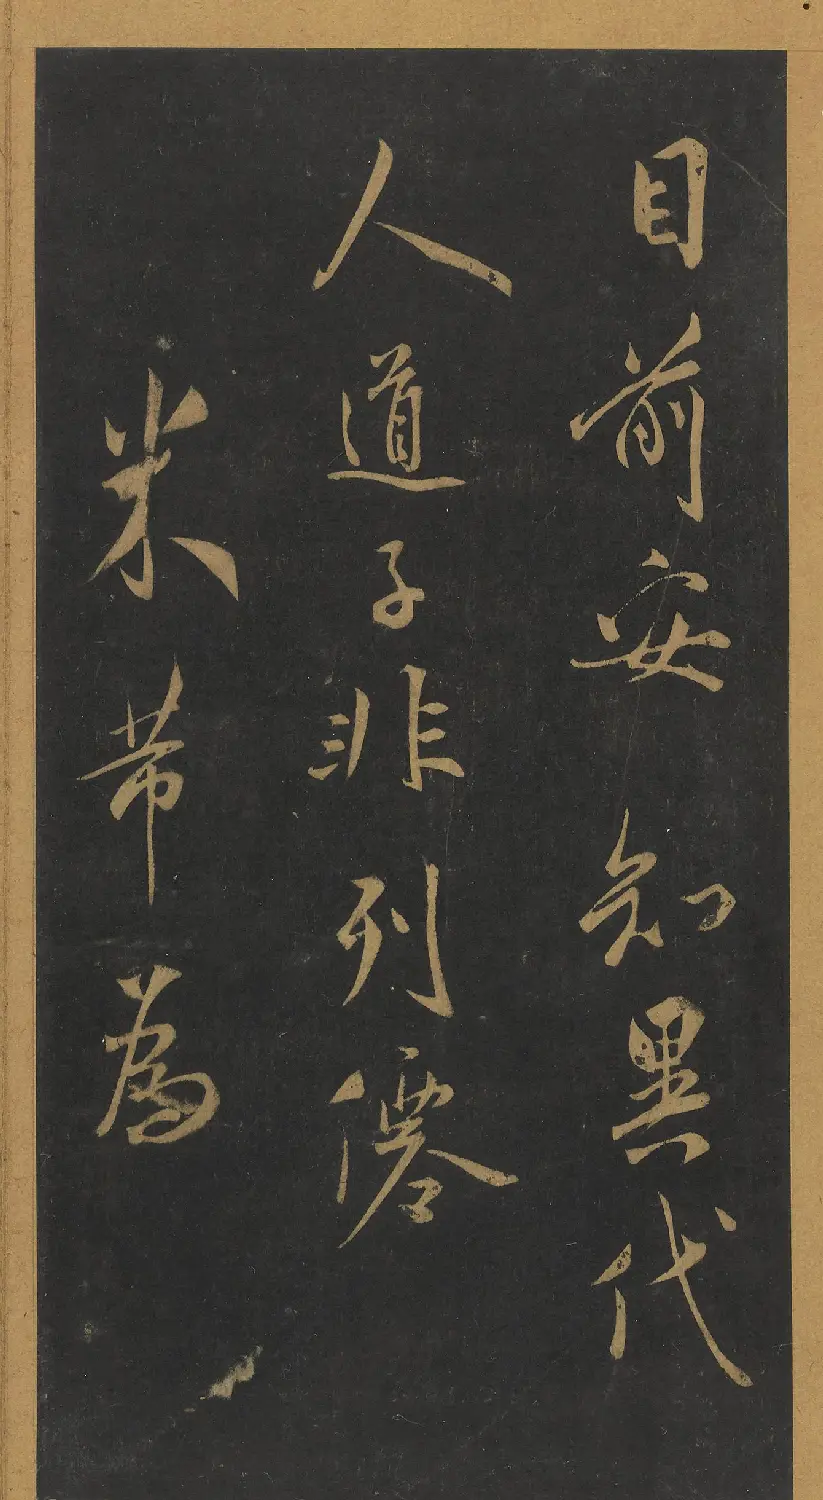 目前安知異代
人道子非列僊
米芾為